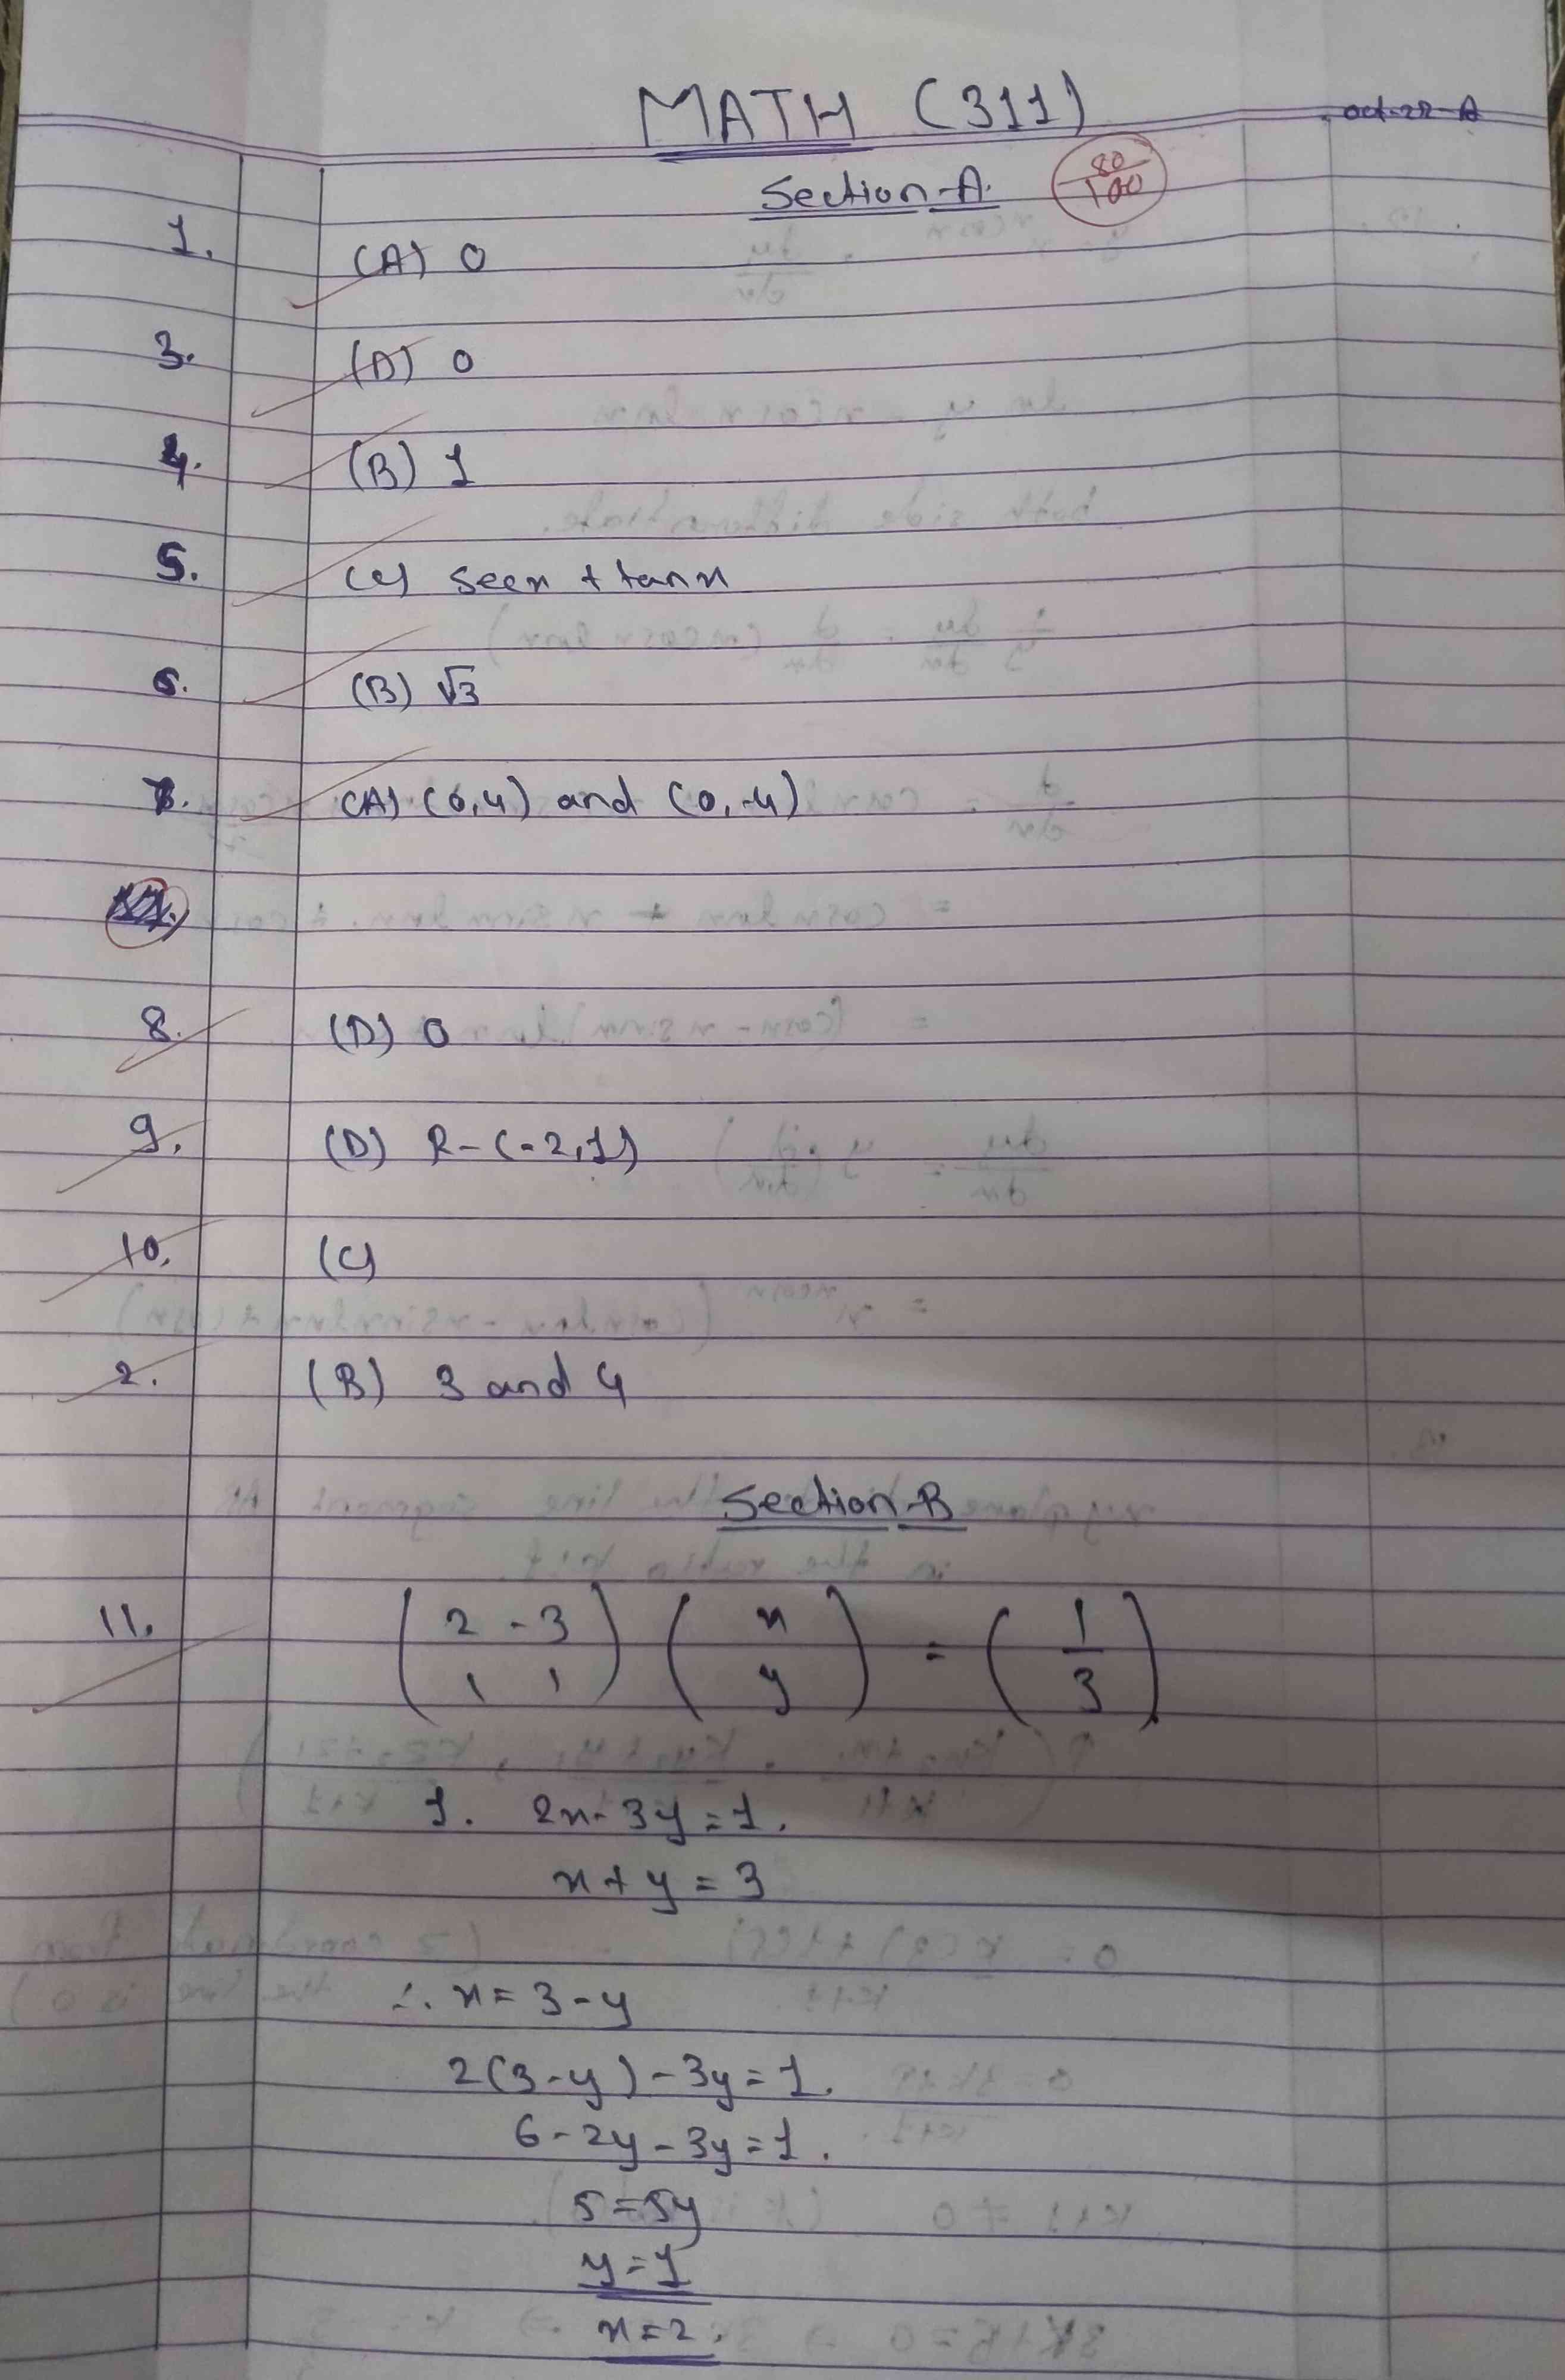 MATH (311)
oct-22-A
Section-A.
80/100
1. (A) 0
3. (D) 0
4. (B) 1
5. (C) secx + tanx
6. (B) √3
7. (A) (0,4) and (0,-4)
8. (D) 0
9. (D) R-(-2,1)
10. (C)
2. (B) 3 and 4
Section-B
11. (2 -3 / 1 1) (x / y) = (1 / 3)
1. 2x-3y=1.
x+y=3
∴ x=3-y
2(3-y)-3y=1.
6-2y-3y=1.
5=5y
y=1
x=2.